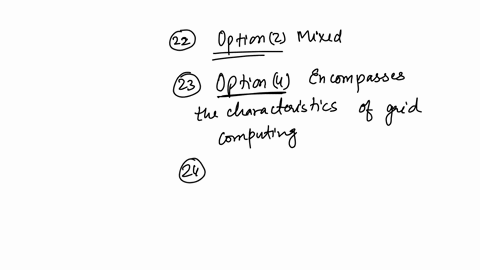 22 Option(2) Mixed
23 Option(4) Encompasses
the characteristics of grid
computing
24